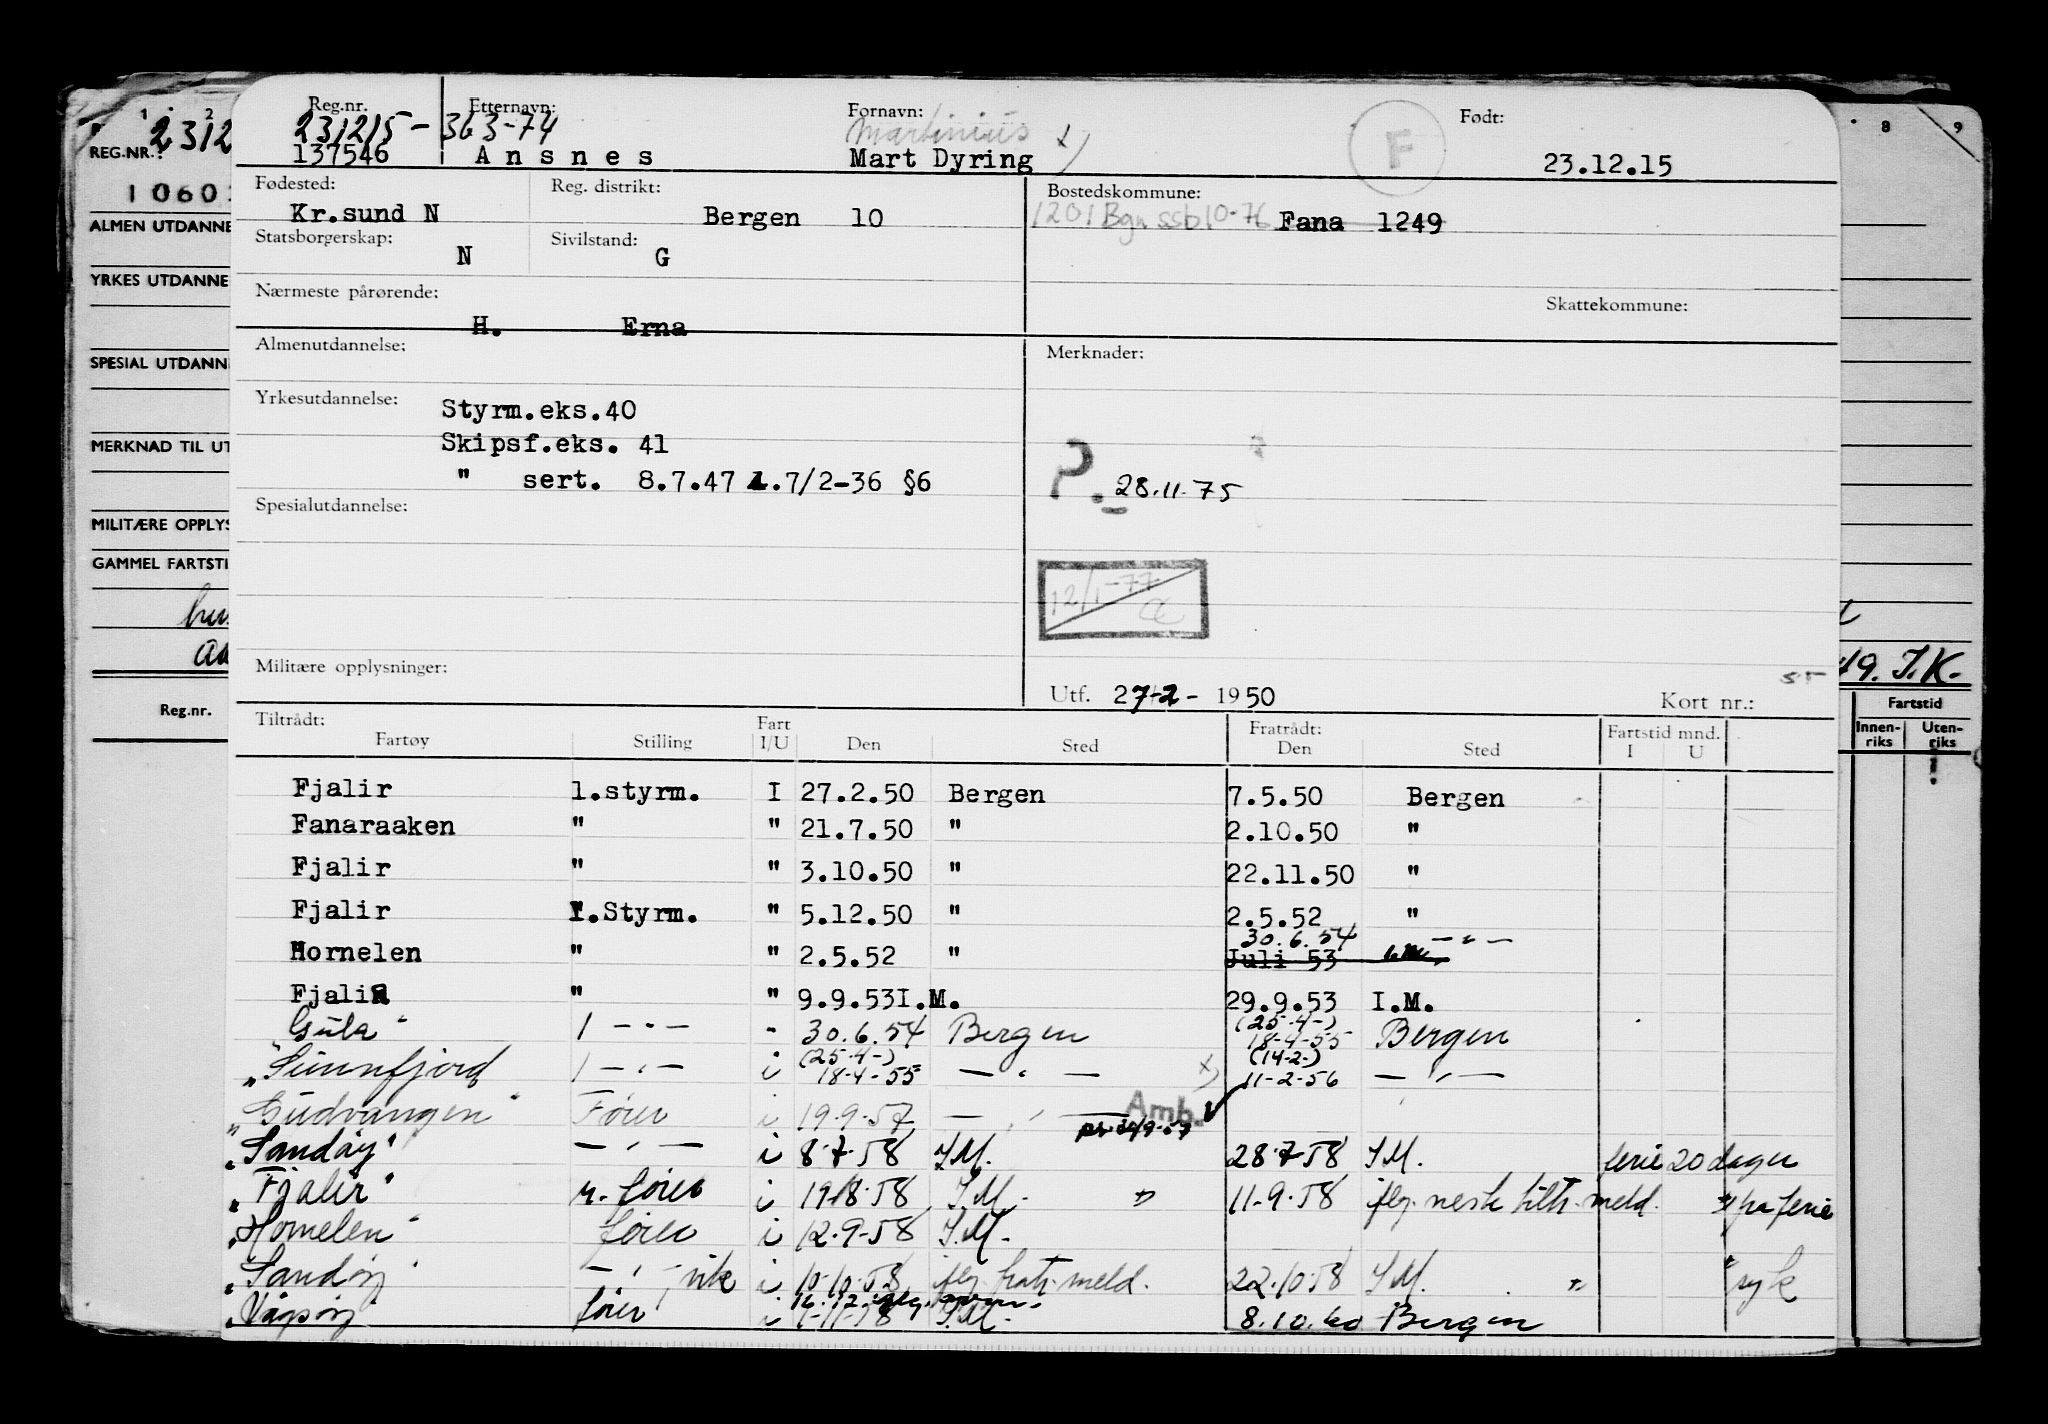 Reg.nr. Etternavn: Fornavn: Født:
231215-363-74 Martinius x) F
137546 Ansnes Mart Dyring 23.12.15
Fødested: Reg. distrikt: Bostedskommune:
Kr.sund N Bergen 10 1201 Bgn ssb 10-76 Fana 1249
Statsborgerskap: Sivilstand:
N G
Nærmeste pårørende: Skattekommune:
H. Erna
Almenutdannelse: Merknader:
Yrkesutdannelse: Styrm.eks.40
Skipsf.eks. 41
" sert. 8.7.47 L.7/2-36 §6
P. 28.11.75
Spesialutdannelse:
12/1-77
Militære opplysninger:
Utf. 27-2- 1950 Kort nr.:
Tiltrådt: Fart Fratrådt: Fartstid mnd.
Fartøy Stilling I/U Den Sted Den Sted I U
Fjalir 1.styrm. I 27.2.50 Bergen 7.5.50 Bergen
Fanaraaken " " 21.7.50 " 2.10.50 "
Fjalir " " 3.10.50 " 22.11.50 "
Fjalir 1.Styrm. " 5.12.50 " 2.5.52 "
30.6.54 - " -
Hornelen " " 2.5.52 " Juli 53
Fjalir " " 9.9.53 I.M. 29.9.53 I.M.
(25-4-)
"Gula" 1 - " - " 30.6.54 Bergen 18-4-55 Bergen
(25-4-) (14-2-)
"Sunnfjord 1 - " - i 18-4-55 - " - x) 11-2-56 - " -
"Gudvangen" Fører i 19.9.57 - " - Amb.
"Sandøy" - " - i 8.7.58 I.M. 28.7.58 I.M. ferie 20 dager
"Fjalir" r. fører i 19.8.58 I.M. " 11-9-58 flg. neste tiltr. meld. " på ferie
"Hornelen" fører i 12-9-58 I.M.
"Sandøy" - " - vik i 10-10-58 flg. fratr. meld. 22.10.58 I.M. " " syk
16.12.
"Vågsøy" fører i 1-11-58 I.M. 8.10.60 Bergen
1 2 8 9
REG.NR.: 2312
10601
ALMEN UTDANNE
YRKES UTDANNE
SPESIAL UTDANN
MERKNAD TIL UT
MILITÆRE OPPLYS
GAMMEL FARTSTI
49. I.K.
Reg.nr. Fartstid
Innen-riks Uten-riks